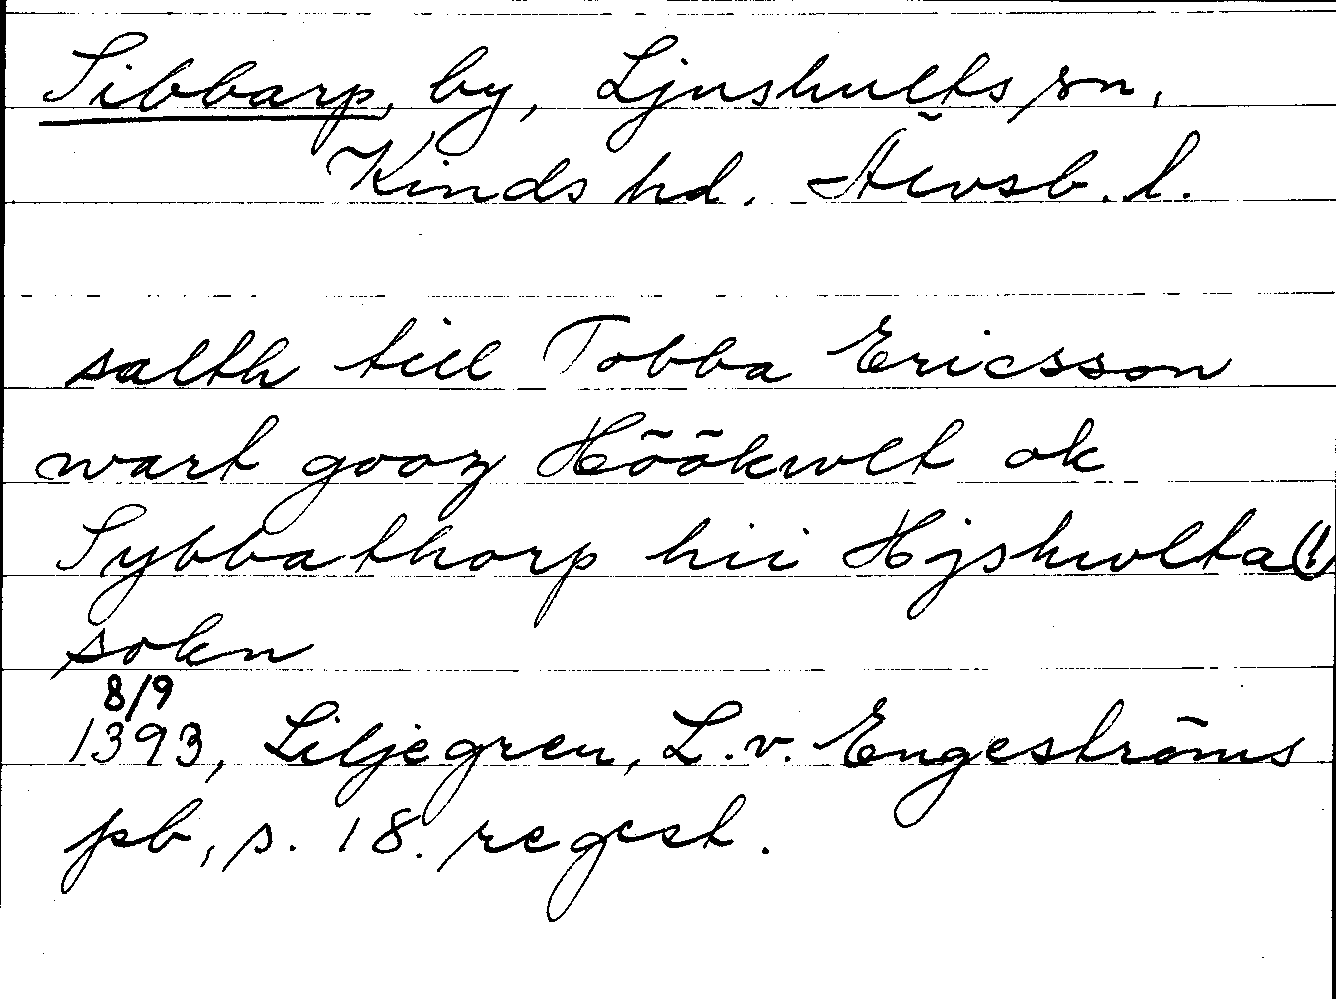 Sibbarp, by, Ljushults sn,
Kinds hd. Älvsb. l.
salth till Tobba Ericsson
wart gooz Höökwlt ok
Sybbathorp hii Hjshwlta (!)
sokn
8/9
1393, Liljegren, L. v. Engeströms
pb, s. 18. regest.